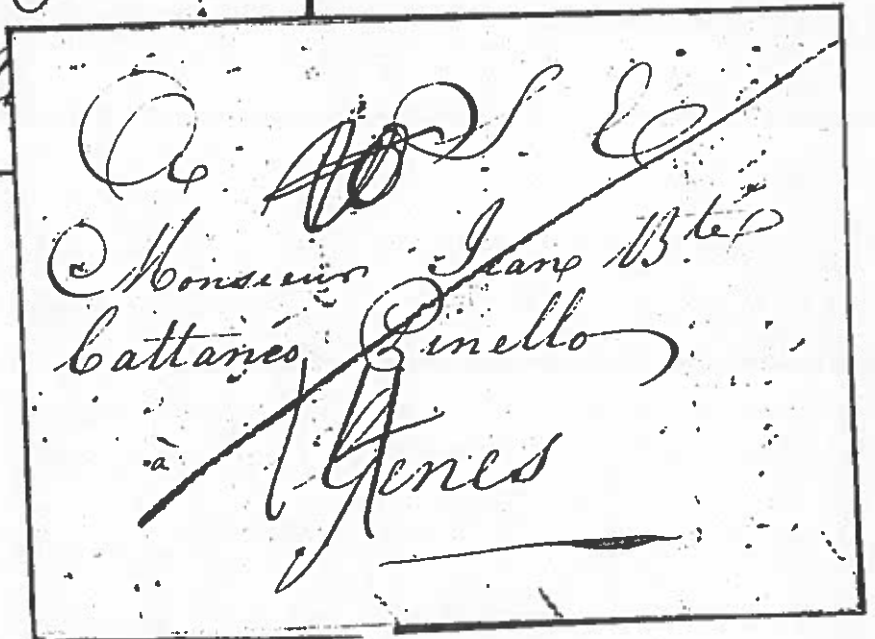 A S E
Monsieur Jean B.te
Cattaneo Pinello
à Gênes